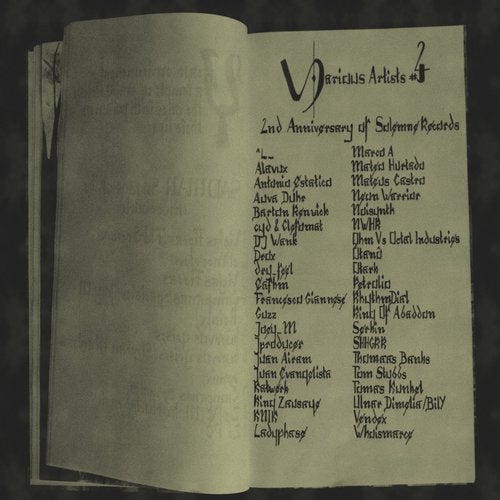 Various Artists #4
2nd Anniversary of Solemne Records
^L_
Alavux
Antonio Estatico
Auva Duhr
Barton Renwick
cyd & Clefomat
DJ Wank
Drax
dry_feel
Francesco Giannese
Guzz
Joey_M
Jproducer
Juan Airam
Juan Evangelista
Katwerk
King Zausage
KNIK
Ladyphase
Marco A
Mateo Hurtado
Mateus Castro
Neon Warrior
Noisynth
NWHR
Ohm Vs Octal Industries
Otanö
Otark
Petrolio
RhythmDial
Ring Of Abaddon
Serkin
SHHGRR
Thomaas Banks
Tom Stubbs
Tomas Kunkel
Ulnar Dimelia/BilY
Vendex
Whoismarco